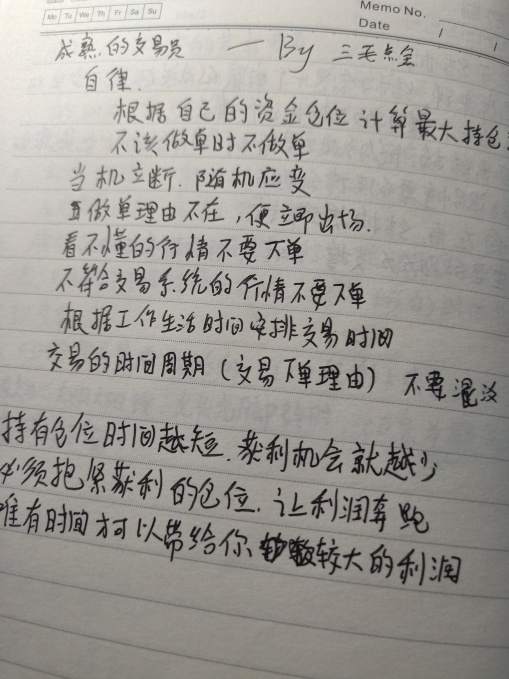 Mo Tu We Th Fr Sa Su
Memo No.
Date / /
成熟的交易员 — By 三毛点金
自律.
根据自己的资金仓位计算最大持仓
不该做单时不做单
当机立断.随机应变
做单理由不在，便立即出场.
看不懂的行情不要下单
不符合交易系统的行情不要下单
根据工作生活时间安排交易时间
交易的时间周期（交易下单理由）不要混淆
持有仓位时间越短.获利机会就越少
必须抱紧获利的仓位.让利润奔跑
唯有时间才可以带给你较大的利润